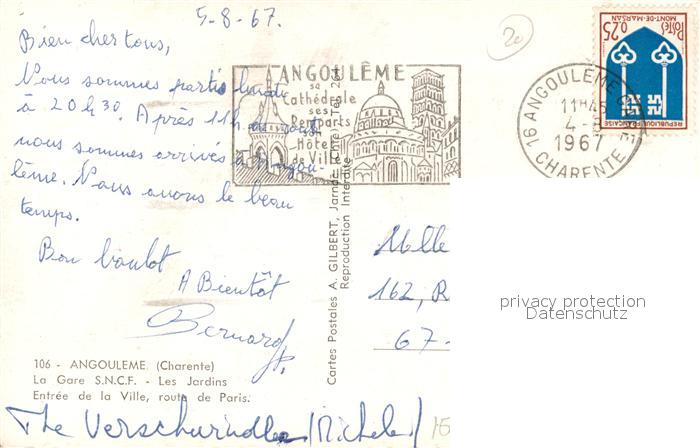 5-8-67.
Bien cher tous,
Nous sommes partis lundi
à 20h30. Après 11h de
nous sommes arrivés à Angou-
lême. Nous avons le beau
temps.
Bon boulot
A Bientôt
Bernard
106 - ANGOULEME. (Charente)
La Gare S.N.C.F. - Les Jardins
Entrée de la Ville, route de Paris.
The Verschurindle (Michele)
Cartes Postales A. GILBERT, Jarnac
Reproduction Interdite
ANGOULÊME
sa
Cathédrale
ses
Remparts
son
Hôtel
de Ville
20
16 ANGOULÊME
11H45
4-8
1967
CHARENTE
POSTES
0,25
MONT-DE-MARSAN
REPUBLIQUE FRANÇAISE
Mlle
162, R
67-
privacy protection
Datenschutz